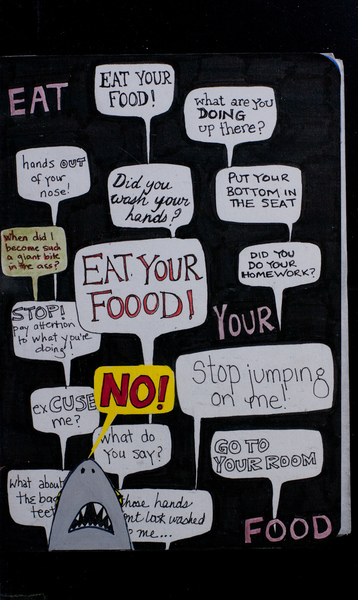 EAT
EAT YOUR
FOOD!
what are you
DOING
up there?
hands OUT
of your
nose!
Did you
wash your
hands?
PUT YOUR
BOTTOM IN
THE SEAT
When did I
become such
a giant bite
in the ass?
EAT YOUR
FOOOD!
DID YOU
DO YOUR
HOMEWORK?
STOP!
pay attention
to what you're
doing!
YOUR
Stop jumping
on me!
NO!
exCUSE
me?
What do
you say?
GO TO
YOUR ROOM
what about
the
teet
those hands
look washed
me....
FOOD